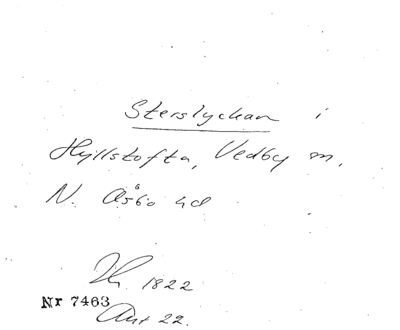 Sterslyckan i
Hyllstofta, Vedby sn,
N. Åsbo hd
1822
Nr 7463
22.